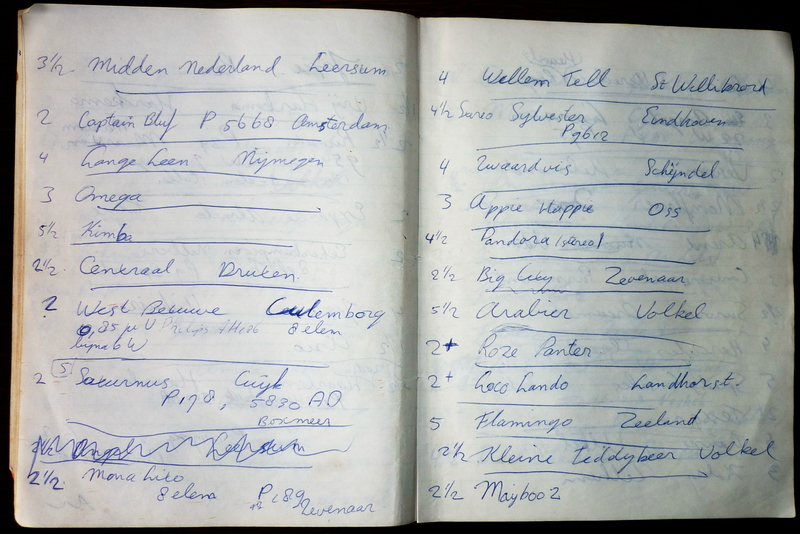 3½ Midden Nederland Leersum
2 Captain Bluf P 5668 Amsterdam
4 Lange Leen Nijmegen
3 Omega
5½ Kimba
2½ Centraal Druten
2 West Betuwe Culemborg
0,85 µV Philips 8 elem
bijna 6 W
5
2 Saturnus Cuijk
P 178, 5830 AD
Boxmeer
2½ Leersum
2½ Mona Lito
8 elem P 189
Zevenaar
4 Wellem Tell St Willibrord
4½ Stereo Sylvester Eindhoven
P 7612
4 Zwaardvis Schijndel
3 Appie Happie Oss
4½ Pandora (stereo)
2½ Big City Zevenaar
5½ Arabier Volkel
2+ Roze Panter
2+ Loco Lando Landhorst.
5 Flamingo Zeeland
2½ Kleine Teddybeer Volkel
2½ Mayboo 2